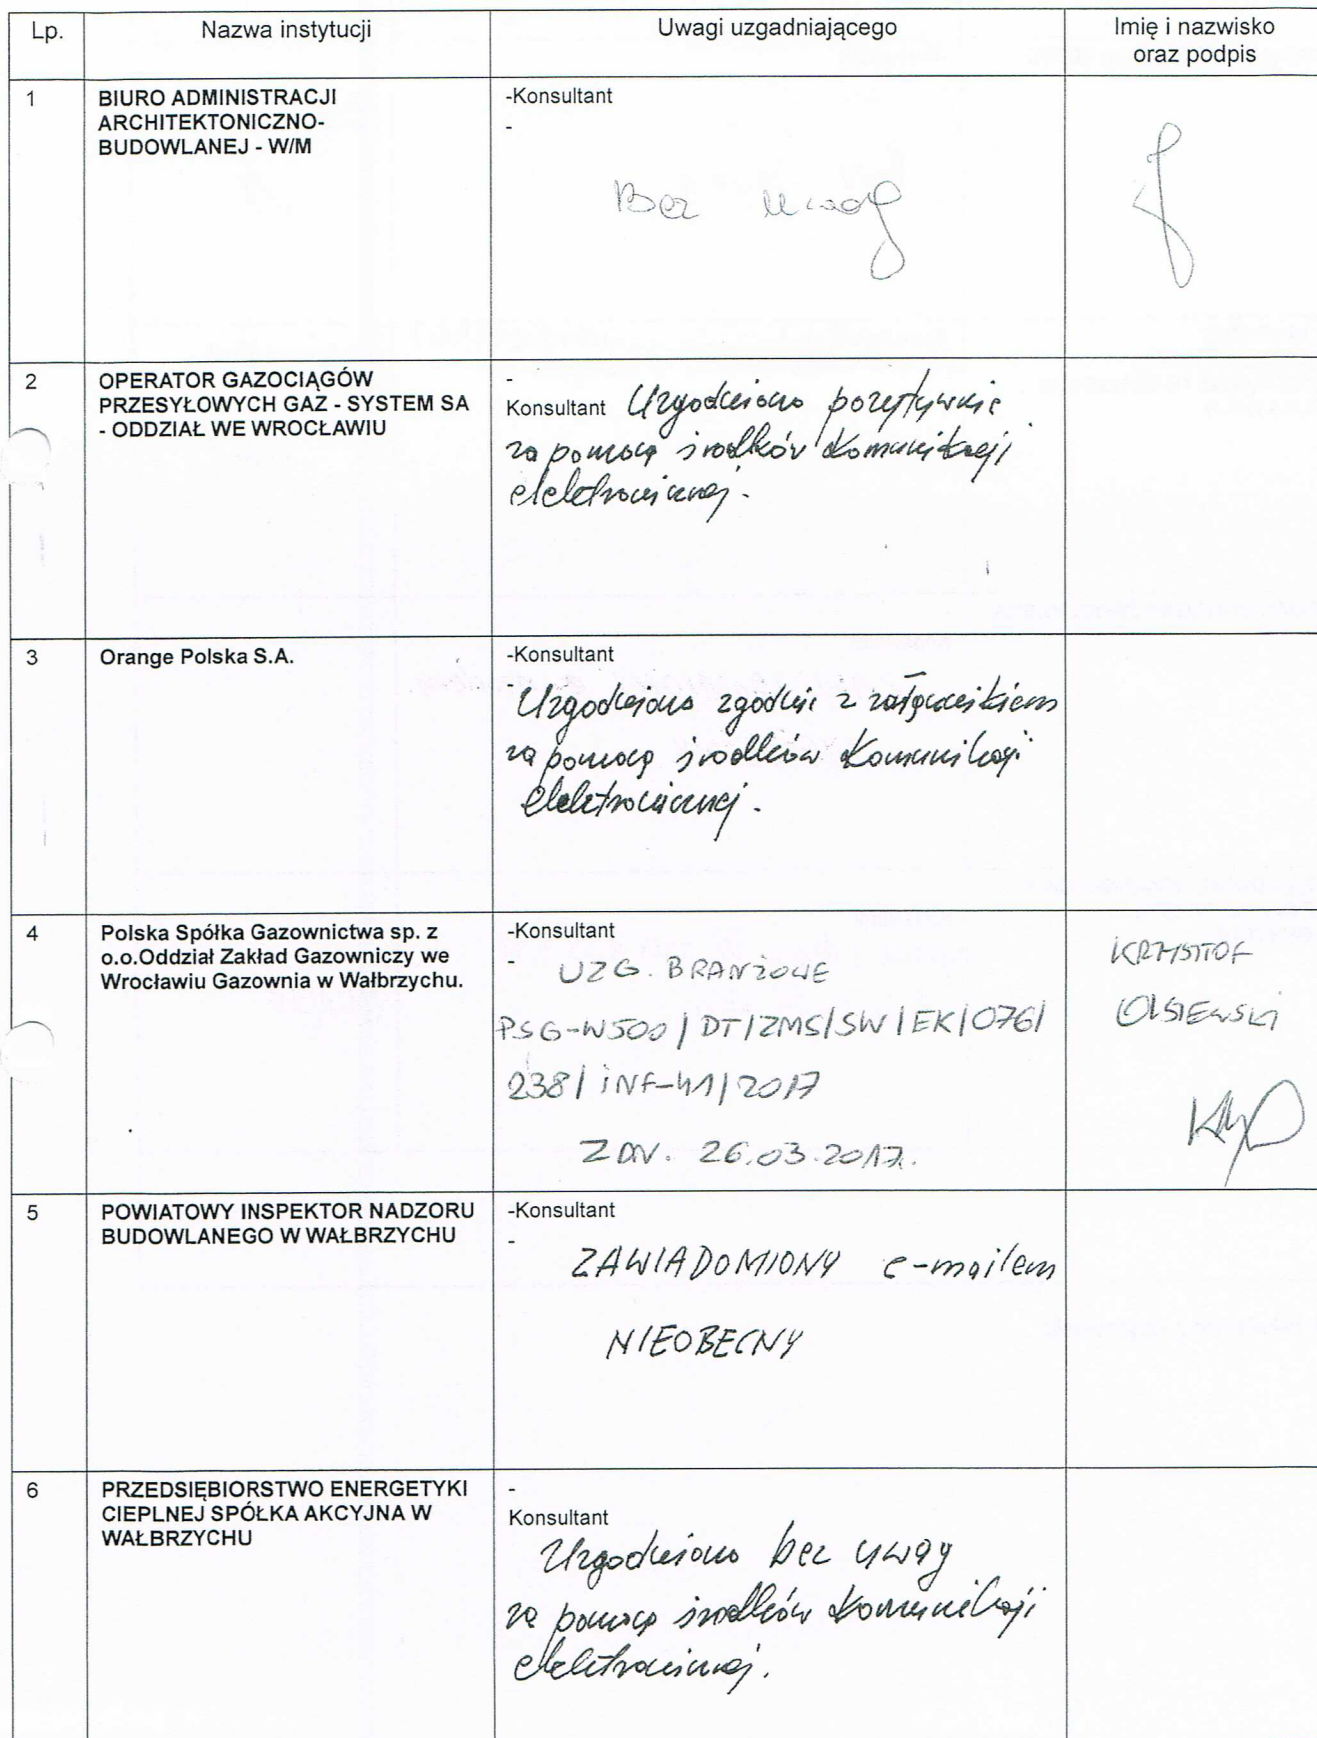 Lp.
Nazwa instytucji
Uwagi uzgadniającego
Imię i nazwisko
oraz podpis
1
BIURO ADMINISTRACJI
ARCHITEKTONICZNO-
BUDOWLANEJ - W/M
-Konsultant
-
Bez uwag
2
OPERATOR GAZOCIĄGÓW
PRZESYŁOWYCH GAZ - SYSTEM SA
- ODDZIAŁ WE WROCŁAWIU
-
Konsultant Uzgodniono pozytywnie
za pomocą środków komunikacji
elektronicznej.
3
Orange Polska S.A.
-Konsultant
- Uzgodniono zgodnie z załącznikiem
za pomocą środków komunikacji
elektronicznej.
4
Polska Spółka Gazownictwa sp. z
o.o.Oddział Zakład Gazowniczy we
Wrocławiu Gazownia w Wałbrzychu.
-Konsultant
- UZG. BRANŻOWE
PSG-W500/DT/ZMS/SW/EK/076/
238/INF-41/2017
Z DN. 26.03.2017.
KRZYSTOF
5
POWIATOWY INSPEKTOR NADZORU
BUDOWLANEGO W WAŁBRZYCHU
-Konsultant
-
ZAWIADOMIONY e-mailem
NIEOBECNY
6
PRZEDSIĘBIORSTWO ENERGETYKI
CIEPLNEJ SPÓŁKA AKCYJNA W
WAŁBRZYCHU
-
Konsultant
Uzgodniono bez uwag
za pomocą środków komunikacji
elektronicznej.